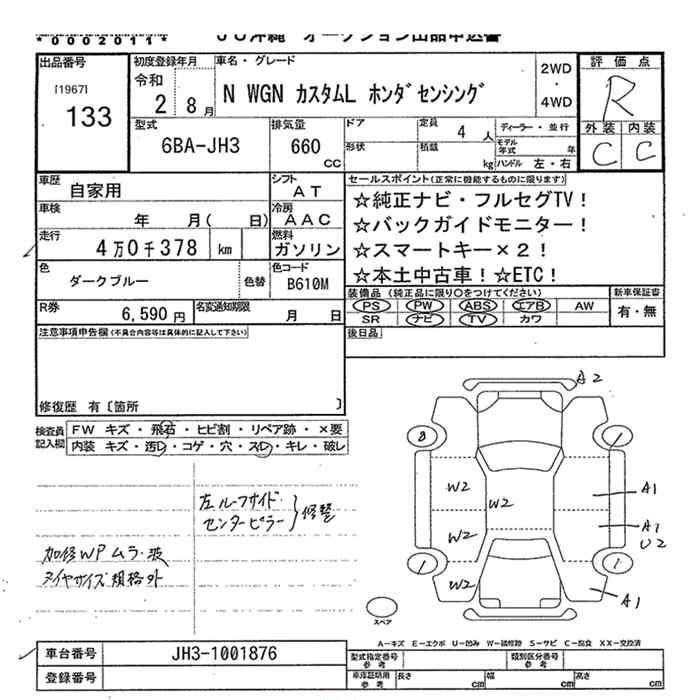 *0002011*
JU沖縄 オークション出品申込書
出品番号
[1967]
133
初度登録年月
令和
2 8月
車名・グレード
N WGN カスタムL ホンダセンシング
2WD
・
4WD
評価点
R
外装 内装
C C
型式
6BA-JH3
排気量
660
CC
ドア
形状
定員
4 人
積載
kg
ディーラー・並行
モデル年式 年
ハンドル 左・右
車歴
自家用
シフト
AT
車検
年 月( 日)
冷房
AAC
走行
4万0千378 km
燃料
ガソリン
色
ダークブルー
色替
色コード
B610M
R券
6,590円
名変通知期限
月 日
セールスポイント(正常に機能するものに限ります)
☆純正ナビ・フルセグTV!
☆バックガイドモニター!
☆スマートキー×2!
☆本土中古車!☆ETC!
装備品(純正品に限り○をつけてください)
PS PW ABS エアB AW
SR ナビ TV カワ
新車保証書
有・無
後日品
注意事項申告欄(不具合内容等は具体的に記入して下さい)
修復歴 有〔箇所 〕
検査員記入欄
FW キズ・飛石・ヒビ割・リペア跡・×要
内装 キズ・汚レ・コゲ・穴・スレ・キレ・破レ
左ルーフサイド・
センターピラー
修整
加修WPムラ・波
タイヤサイズ規格外
A2
8
W2
W2
W2
W2
A1
A1
U2
A1
スペア
A-キズ E-エクボ U-凹み W-補修跡 S-サビ C-腐食 XX-交換済
車台番号
JH3-1001876
登録番号
型式指定番号参考
類別区分番号参考
車庫証明用参考
長さ cm
幅 cm
高さ cm